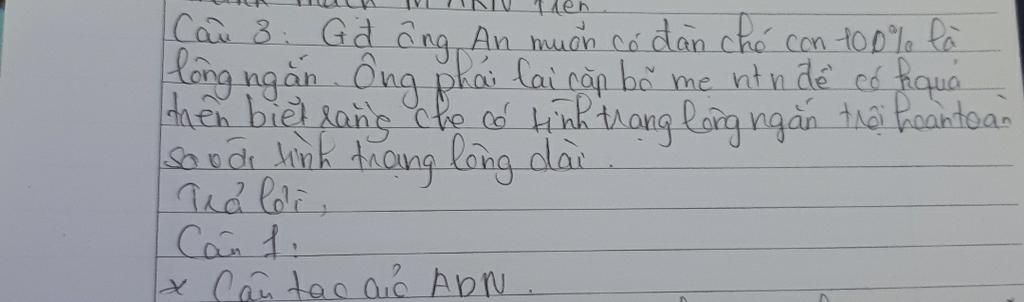 Câu 3: Gđ ông An muốn có đàn chó con 100% là
lông ngắn. Ông phải lai cặp bố mẹ ntn để có kquả
trên biết rằng chó có tính trạng lông ngắn trội hoàn toàn
so với tính trạng lông dài.
Trả lời,
Câu 1:
x Cấu tạo của ADN.